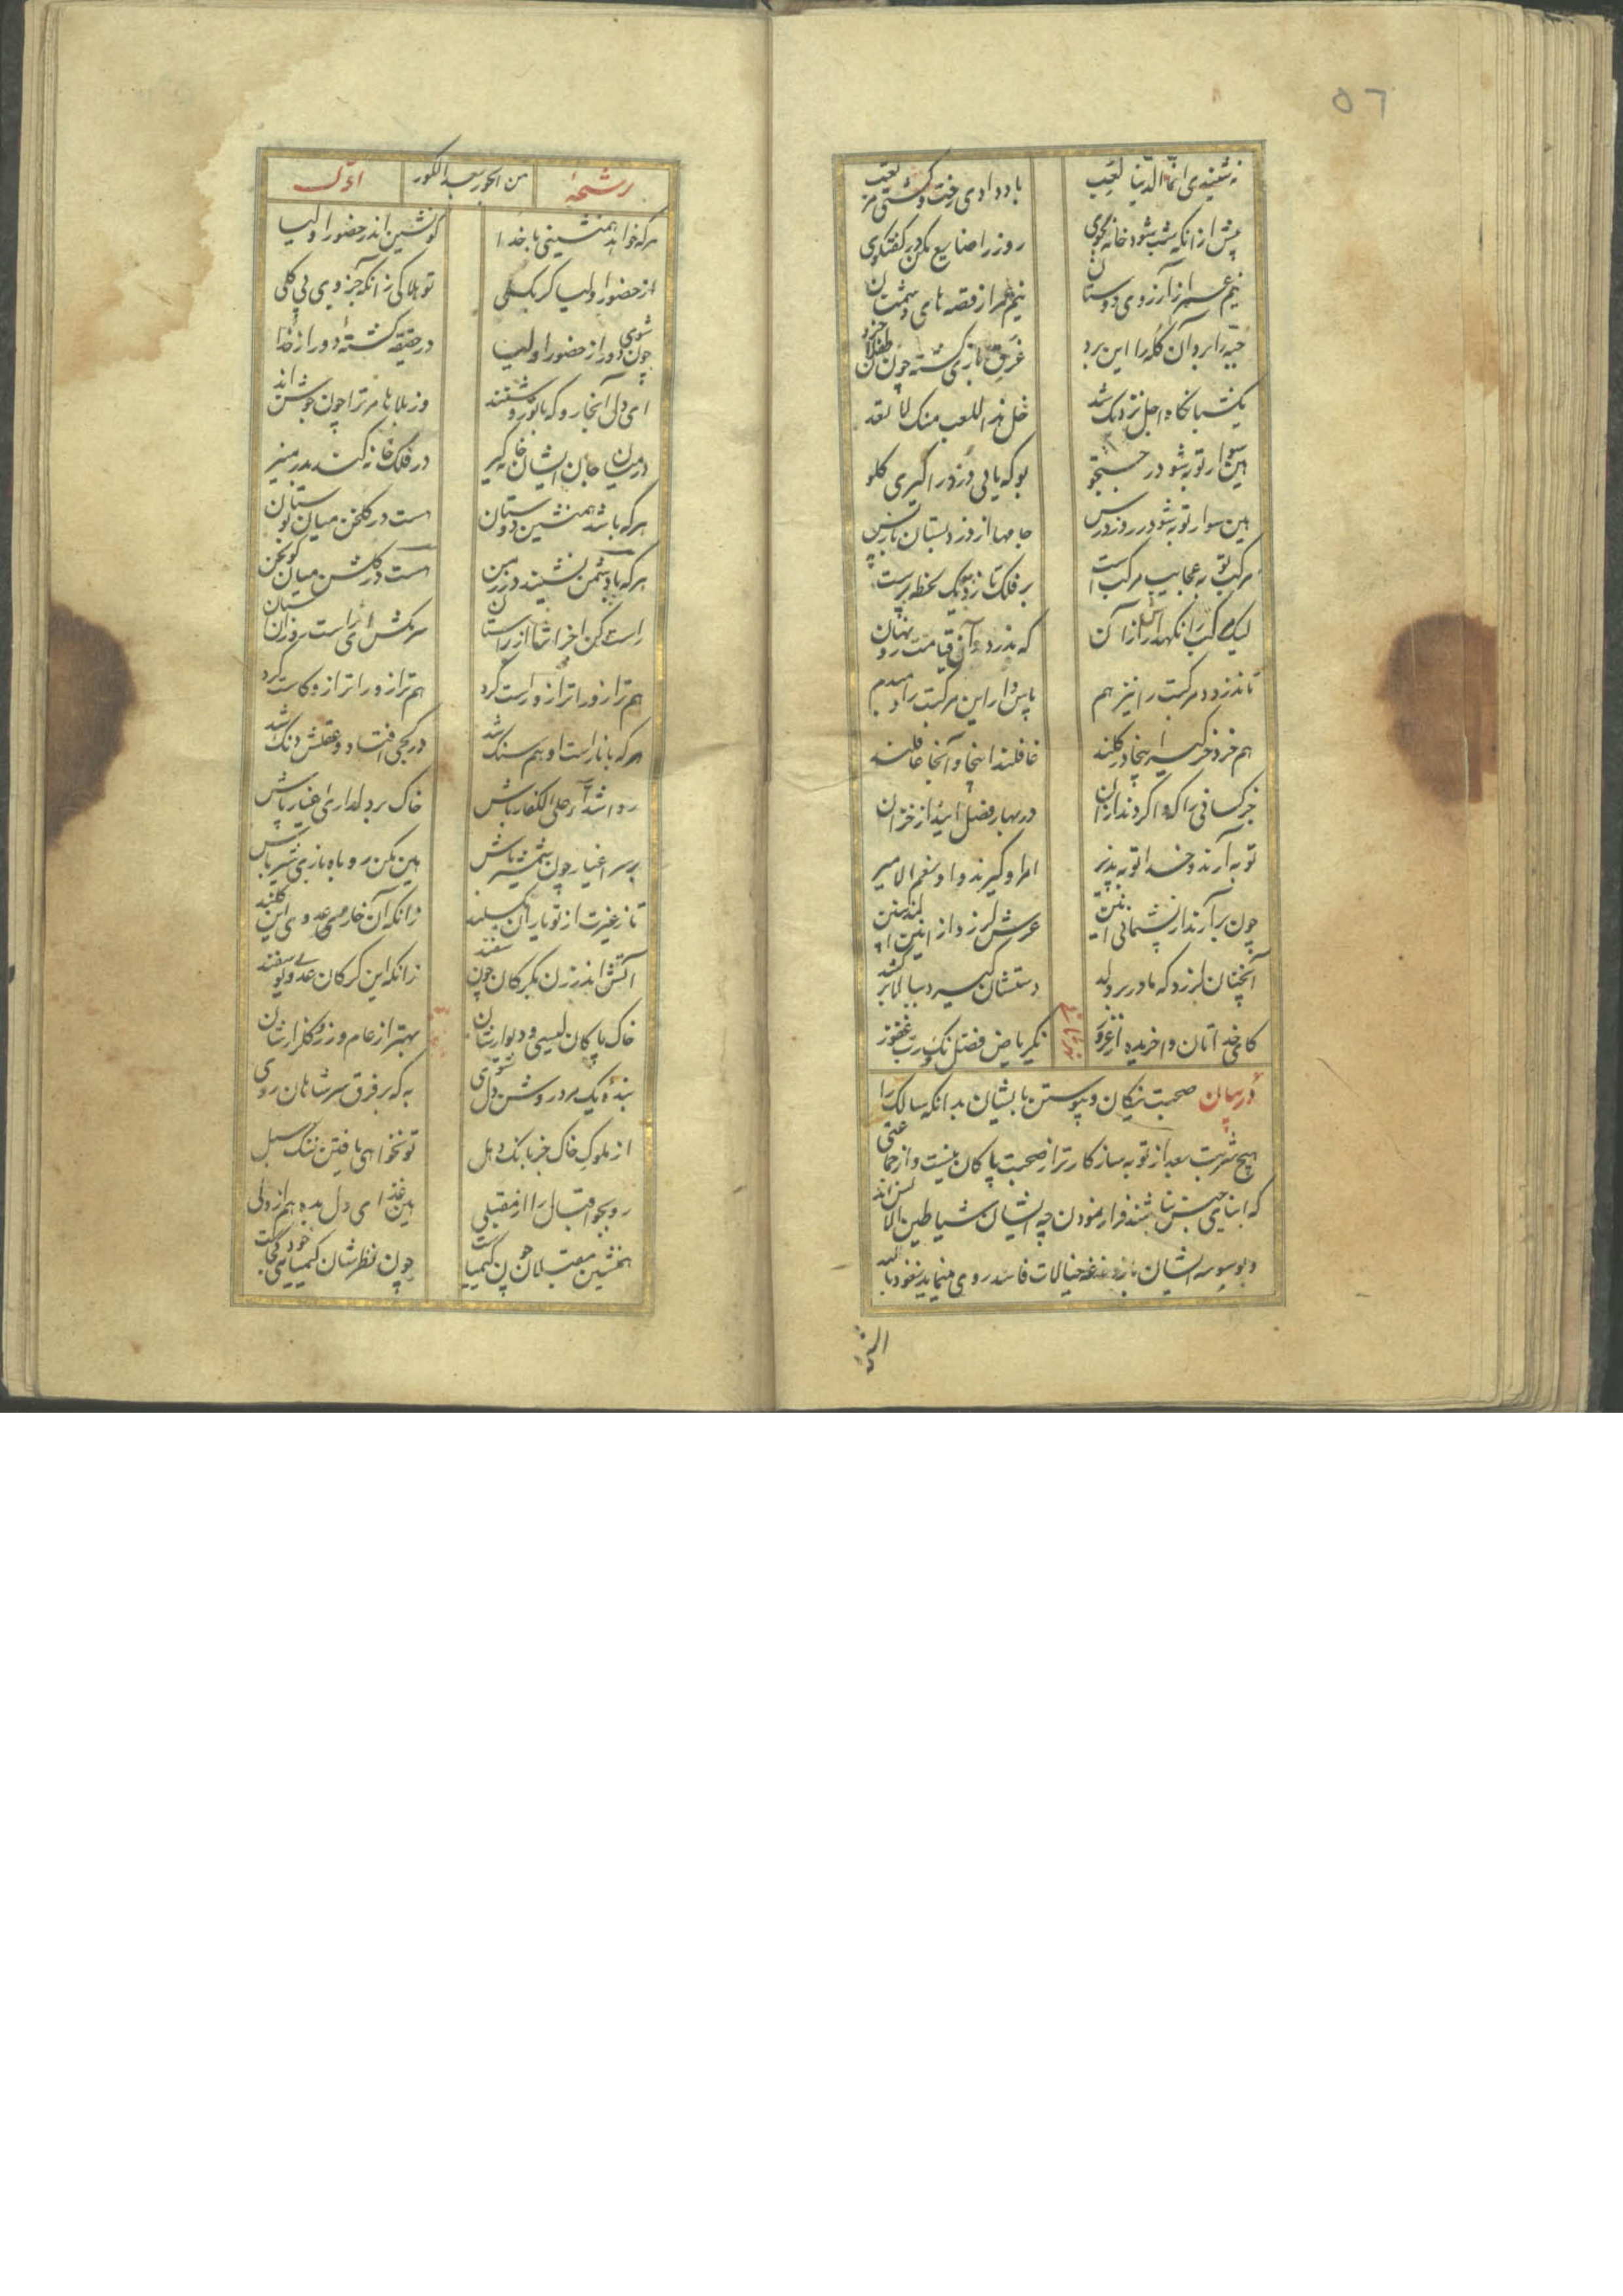 ٥٦
نه شنیدی انما الدنیا لعب
باد دادی رخت و گشتی مرتعب
پیش از آنکه شب شود خانه بجوی
روز را ضایع مکن در گفتگوی
نیم عمر از آرزوی دوستان
نیم عمر از قصه های دشمنان
جبه را برد آن کله را این برد
غرق بازی گشته چون طفلان خرد
یک شبانگاه اجل نزدیک شد
خل هذا اللعب بسک لا تعد
هین سوار توبه شو در جستجو
بو که یابی دزد را گیری گلو
هین سوار توبه شو در دزد رس
جامها از دزد بستان باز پس
مرکب توبه عجایب مرکب است
بر فلک تازد بیک لحظه ز پست
لیک مرکب را نگهدار از آن
که بدزدد آن قبایت در نهان
تا ندزدد مرکبت را نیز هم
پاس دار این مرکبت را دم بدم
غافلند اینجا و آنجا غافلند
در بهار فضل آیند از خزان
توبه آرند و خدا توبه پذیر
امر او گیرند و او نعم الامیر
چون برآرند از پشیمانی انین
عرش لرزد از انین المذنبین
آنچنان لرزد که مادر بر ولد
دستشان گیرد ببالا می کشد
کای خداتان وا خریده از غرور
نک ریاض فضل نک رب غفور
در بیان صحبت نیکان و پیوستن بایشان بدانکه سالک را
هیچ شربت بعد از توبه سازگارتر از صحبت پاکان نیست و از جماعتی
که ابنای جنس نباشند فرار نمودن چه ایشان شیاطین الانس اند
و بوسوسه ایشان باز دغدغه خیالات فاسد روی مینماید نعوذ بالله
رشحهٔ
من الحور بعد الکور
اول
هر که خواهد همنشینی با خدا
گو نشین اندر حضور اولیا
از حضور اولیا گر بگسلی
تو هلاکی زانکه جزوی بی کلی
چون شوی دور از حضور اولیا
در حقیقه گشتهٔ دور از خدا
ای دل آنجا رو که با تو روشنند
وز بلاها مر ترا چون جوشن اند
در میان جان ایشان خانه گیر
در فلک خانه کند بدر منیر
هر که باشد همنشین دوستان
هست در گلخن میان بوستان
هر که با دشمن نشیند در زمن
هست در گلشن میان گولخن
راست کن اجزات را از راستان
سر مکش ای راست رو زان آستان
هم ترازو را ترازو راست کرد
هم ترازو را ترازو کاست کرد
هر که با ناراست او هم سنگ شد
در کمی افتاد و عقلش دنگ شد
رو اشداء علی الکفار باش
خاک بر دلداری اغیار پاش
بر سر اغیار چون شمشیر باش
هین مکن روباه بازی شیر باش
تا ز غیرت از تو یاران نگسلند
زانکه آن خاران عدوی این گلند
آتش اندر زن بگرگان چون سپند
زانکه این گرگان عدوی یوسفند
خاک پاکان لیسی و دیوارشان
بهتر از عام و رز و گلزارشان
بندهٔ یک مرد روشن دل شوی
به که بر فرق سر شاهان روی
از ملوک خاک جز بانگ دهل
تو نخواهی یافتن پیک سبل
رو بجو اقبال را از مقبلی
هین غذای دل بده از همدلی
همنشین مقبلان چون کیمیاست
چون نظرشان کیمیایی خود کجاست